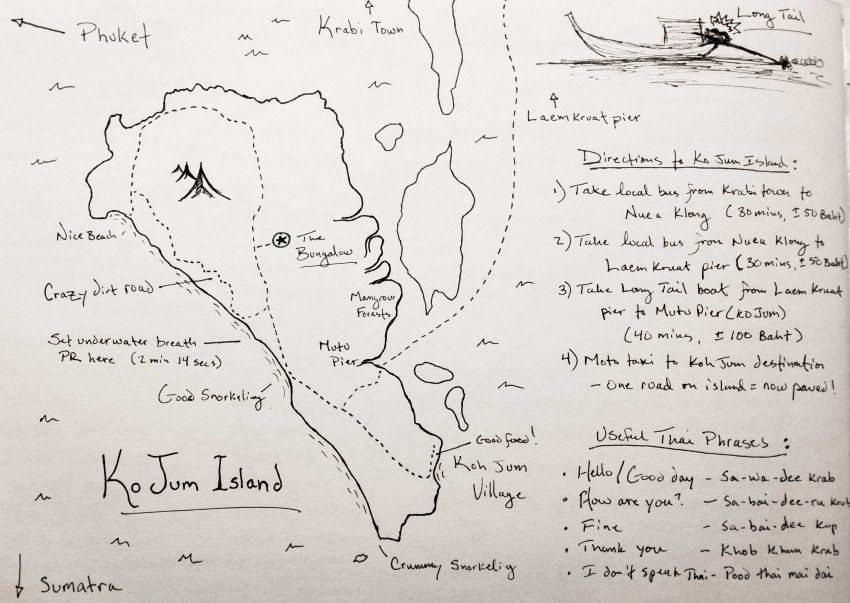 Phuket
Krabi Town
Long Tail
Laem Kruat pier
Directions to Ko Jum Island:
1) Take local bus from Krabi town to
Nuea Klong (30 mins, ± 50 Baht)
2) Take local bus from Nuea Klong to
Laem Kruat pier (30 mins, ± 50 Baht)
3) Take Long Tail boat from Laem Kruat
pier to Mutu Pier (Ko Jum)
(40 mins, ± 100 Baht)
4) Moto taxi to Koh Jum destination
- One road on island = now paved!
Nice Beach
The
Bungalow
Crazy dirt road
Mangrove
Forests
Set underwater breath
PR here (2 min 14 secs)
Mutu
Pier
Good Snorkeling
Good food!
Koh Jum
Village
Ko Jum Island
Crummy Snorkeling
Sumatra
Useful Thai Phrases:
• Hello/Good day - Sa-wa-dee krab
• How are you? - Sa-bai-dee-ru krub
• Fine - Sa-bai-dee kup
• Thank you - Khob khun krab
• I don't speak Thai - Pood thai mai dai